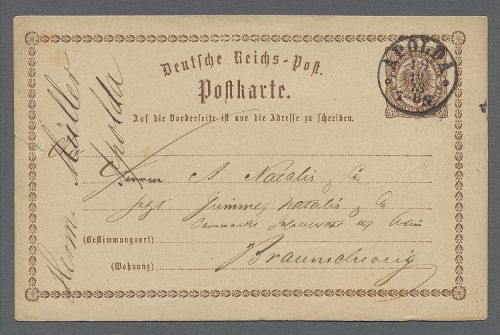 Deutsche Reichs-Post.
Postkarte.
Auf die Vorderseite ist nur die Adresse zu schreiben.
APOLDA
An
Herrn A. Natalis & Co.
jetzt Grimme, Natalis & Co
(Bestimmungsort)
Braunschweig
(Wohnung)
Herm. Müller
Apolda